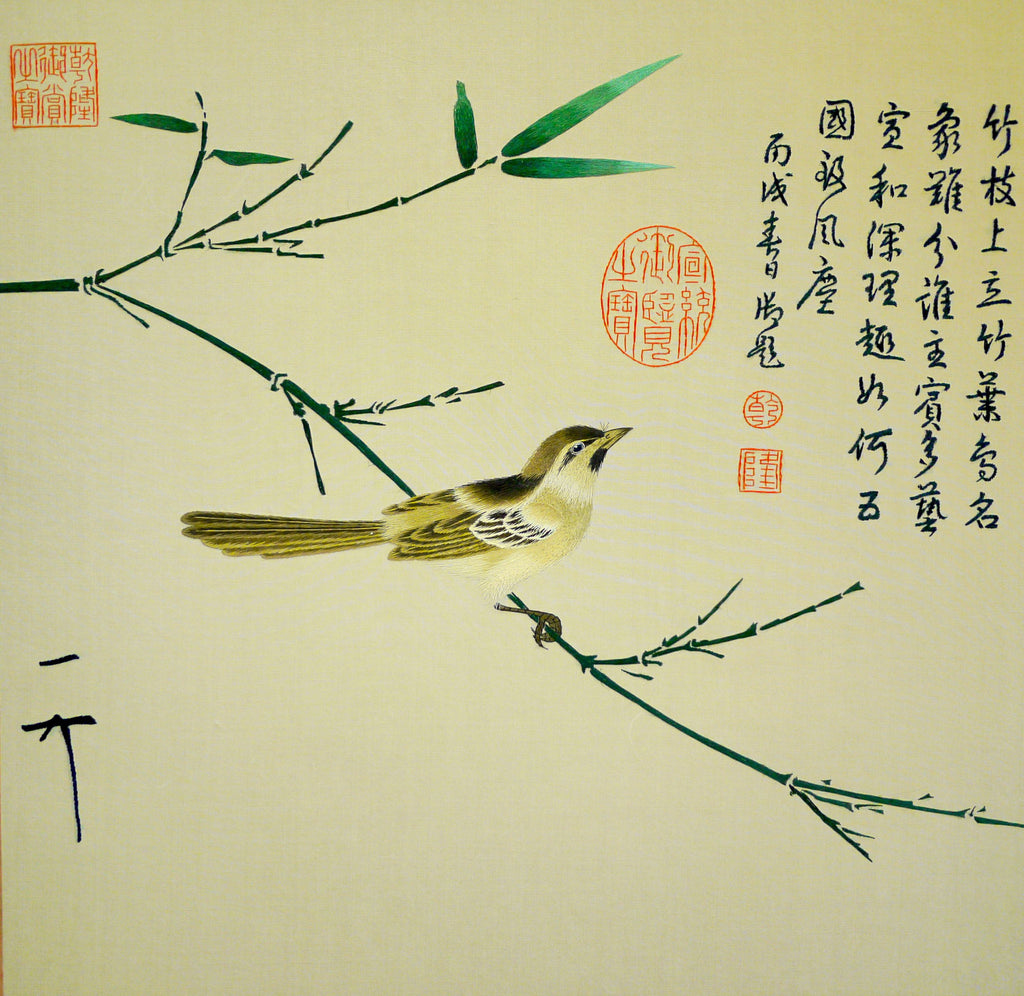 竹枝上立竹葉鳥名
象難分誰主賓多藝
宣和深理趣如何五
國風塵
丙戌春日御題
乾
隆
宣統
御覽
之寶
乾隆
御賞
之寶